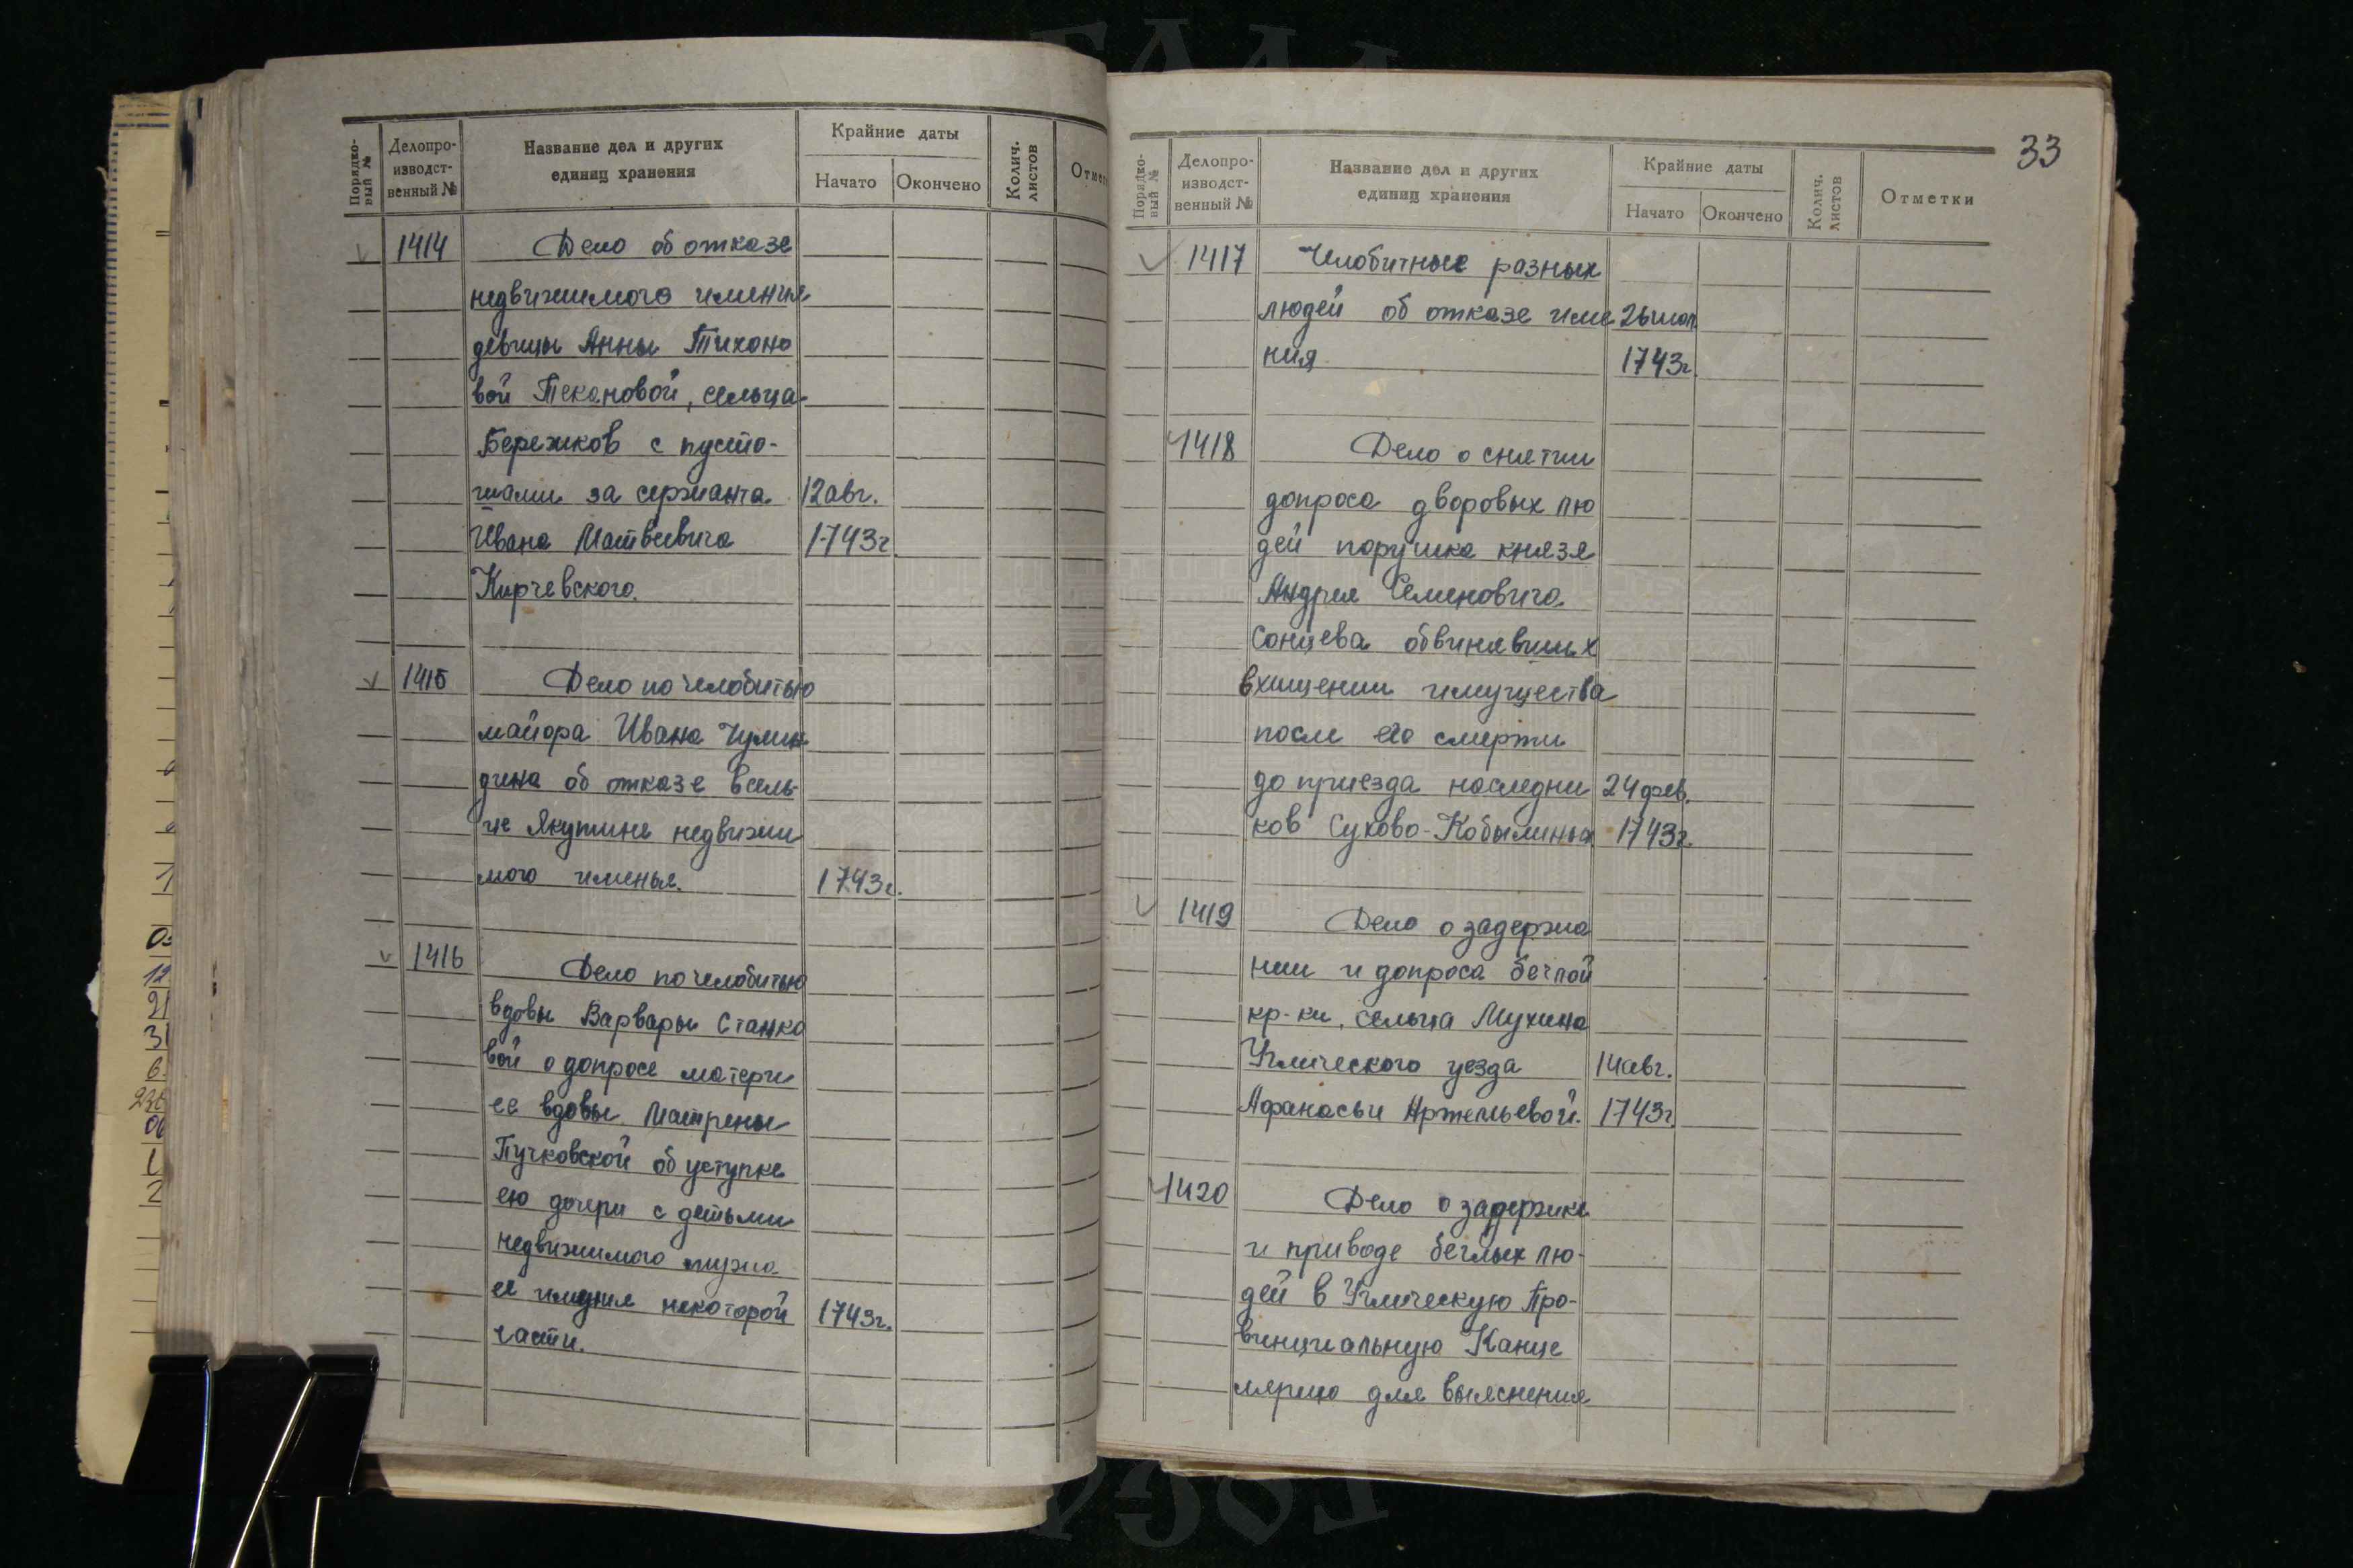 Порядко-
вый №
Делопро-
изводст-
венный №
Название дел и других
единиц хранения
Крайние даты
Начато
Окончено
Колич.
листов
1414 Дело об отказе
недвижимого имения
девицы Анны Тихоно
вой Текановой, сельца
Бережков с пусто-
шами за сержанта 12 авг.
Ивана Матвеевича 1743г
Кирчевского.
1415 Дело по челобитью
майора Ивана Чумин
дина об отказе в сель-
це Якутине недвижи
мого именья. 1743г.
1416 Дело по челобитью
вдовы Варвары Станко
вой о допросе матери
ее вдовы Матрены
Пучковской об уступке
ею дочери с детьми
недвижимого мужа
ее имения некоторой 1743г.
части.
33
Порядко-
вый №
Делопро-
изводст-
венный №
Название дел и других
единиц хранения
Крайние даты
Начато
Окончено
Колич.
листов
Отметки
1417 Челобитные разных
людей об отказе име 26
ния 1743г.
1418 Дело о снятии
допроса дворовых лю
дей поручика князя
Андрея Семеновича
Сонцева обвинявших
в хищении имущества
после его смерти
до приезда наследни 24 фев.
ков Сухово-Кобылиных 1743г.
1419 Дело о задержа
нии и допроса беглой
кр-ки, сельца Мухина
Угличского уезда 14 авг.
Афанасьи Артемьевой. 1743г.
1420 Дело о задержке
и приводе беглых лю-
дей в Угличскую Про-
винциальную Канце
лярию для выяснения